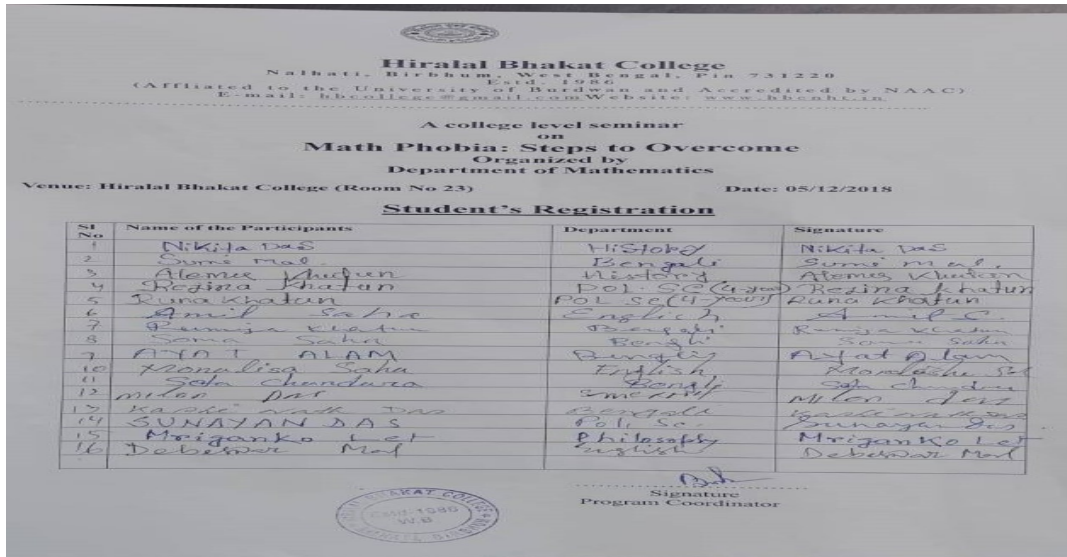 Hiralal Bhakat College
Nalhati, Birbhum, West Bengal, Pin 731220
Estd. 1986
(Affiliated to the University of Burdwan and Accredited by NAAC)
E-mail: hbcollege@gmail.com Website: www.hbcnht.in
A college level seminar
on
Math Phobia: Steps to Overcome
Organized by
Department of Mathematics
Venue: Hiralal Bhakat College (Room No 23) Date: 05/12/2018
Student's Registration
Sl No Name of the Participants Department Signature
1 Nikita Das History Nikita Das
2 Sumi Mal. Bengali Sumi Mal.
3 Khatun History Khatun
4 Rezina Khatun Pol. SC (4-year) Rezina Khatun
5 Runa Khatun Pol. Sc (4-year) Runa Khatun
6 Amil Saha English Amil S.
7 Khatun Bengali Khatun
8 Soma Saha Bengali Soma Saha
9 AYAT ALAM Bengali Ayat Alam
10 Monalisa Saha English
11 Bengli
12 Milon Das Milon
13 Nath Das Bengali
14 SUNAYAN DAS Poli Sc. Sunayan Das
15 Mriganko Let Philosophy Mriganko Let
16 Mal English Mal
Signature
Program Coordinator
BHAKAT COLLEGE
Estd-1986
W.B